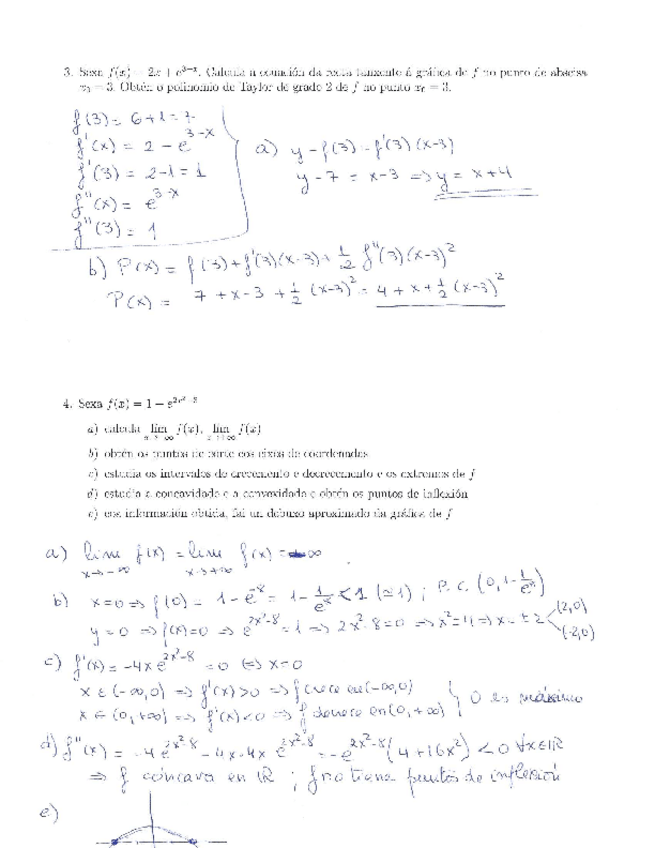 3. Sexa f(x) = 2x + e^{3−x}. Calcula a ecuación da recta tanxente á gráfica de f no punto de abscisa
x₀ = 3. Obtén o polinomio de Taylor de grado 2 de f no punto x₀ = 3.
f(3) = 6+1 = 7
f'(x) = 2 − e^{3−x}
f'(3) = 2−1 = 1
f''(x) = e^{3−x}
f''(3) = 1
a) y − f(3) = f'(3) (x−3)
y − 7 = x−3 ⇒ y = x+4
b) P(x) = f(3) + f'(3)(x−3) + 1/2 f''(3)(x−3)²
P(x) = 7 + x−3 + 1/2 (x−3)² = 4 + x + 1/2 (x−3)²
4. Sexa f(x) = 1 − e^{2x²−8}
a) calcula lim_{x→−∞} f(x), lim_{x→+∞} f(x)
b) obtén os puntos de corte cos eixos de coordenadas
c) estudia os intervalos de crecemento e decrecemento e os extremos de f
d) estudia a concavidade e a convexidade e obtén os puntos de inflexión
e) coa información obtida, fai un debuxo aproximado da gráfica de f
a) lim_{x→−∞} f(x) = lim_{x→+∞} f(x) = −∞
b) x=0 ⇒ f(0) = 1 − e^{−8} = 1 − 1/e⁸ < 1 (≃1) ; P.C. (0, 1−1/e⁸)
y=0 ⇒ f(x)=0 ⇒ e^{2x²−8} = 1 ⇒ 2x²−8=0 ⇒ x²=4 ⇒ x=±2 (2,0) (−2,0)
c) f'(x) = −4x e^{2x²−8} = 0 ⇔ x=0
x ∈ (−∞,0) ⇒ f'(x)>0 ⇒ f crece en (−∞,0)
x ∈ (0,+∞) ⇒ f'(x)<0 ⇒ f decrece en (0,+∞) } 0 es máximo
d) f''(x) = −4e^{2x²−8} − 4x·4x e^{2x²−8} = −e^{2x²−8}(4+16x²) < 0 ∀x∈ℝ
⇒ f cóncava en ℝ ; f no tiene puntos de inflexión
e)